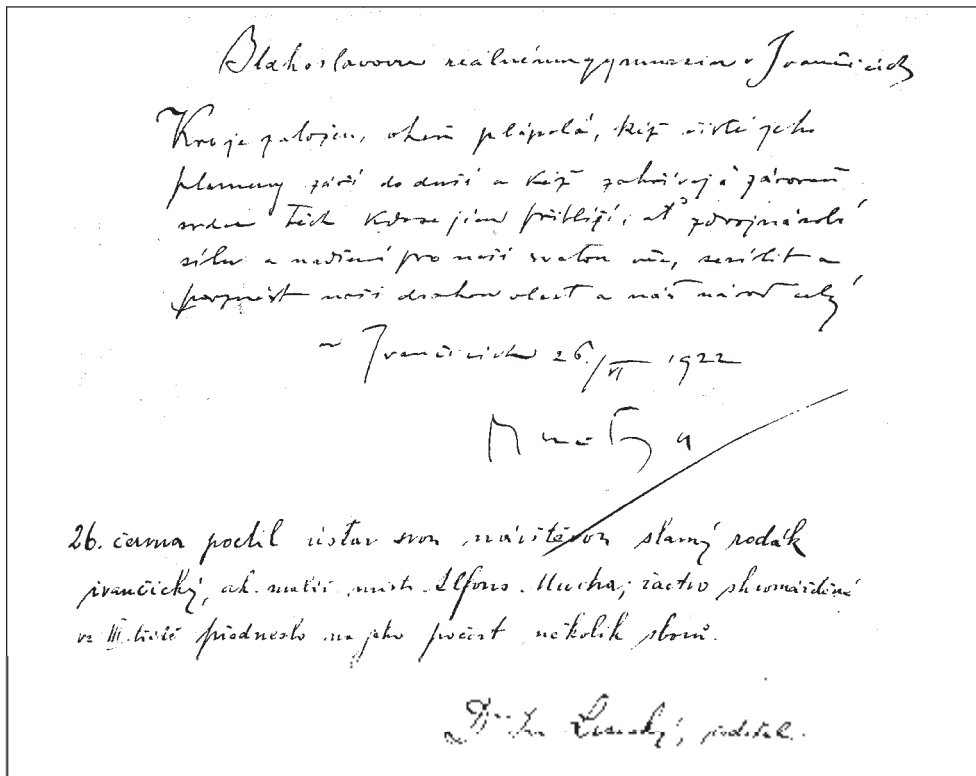 Blahoslavovu reálnému gymnasiu v Ivančicích
Krb je založen, oheň plápolá, kéž čisté jeho
plameny září do duší a kéž zahřívají zároveň
srdce těch kdo se jim přiblíží, ať zdvojnásobí
sílu a nadšení pro naši svatou věc, sesílit a
povznést naši drahou vlast a náš národ celý
v Ivančicích 26./VI 1922
Mucha
26. června poctil ústav svou návštěvou slavný rodák
ivančický, ak. malíř mistr Alfons Mucha; žactvo shromážděné
ve III. třídě předneslo na jeho počest několik sborů.
Dr. ředitel.